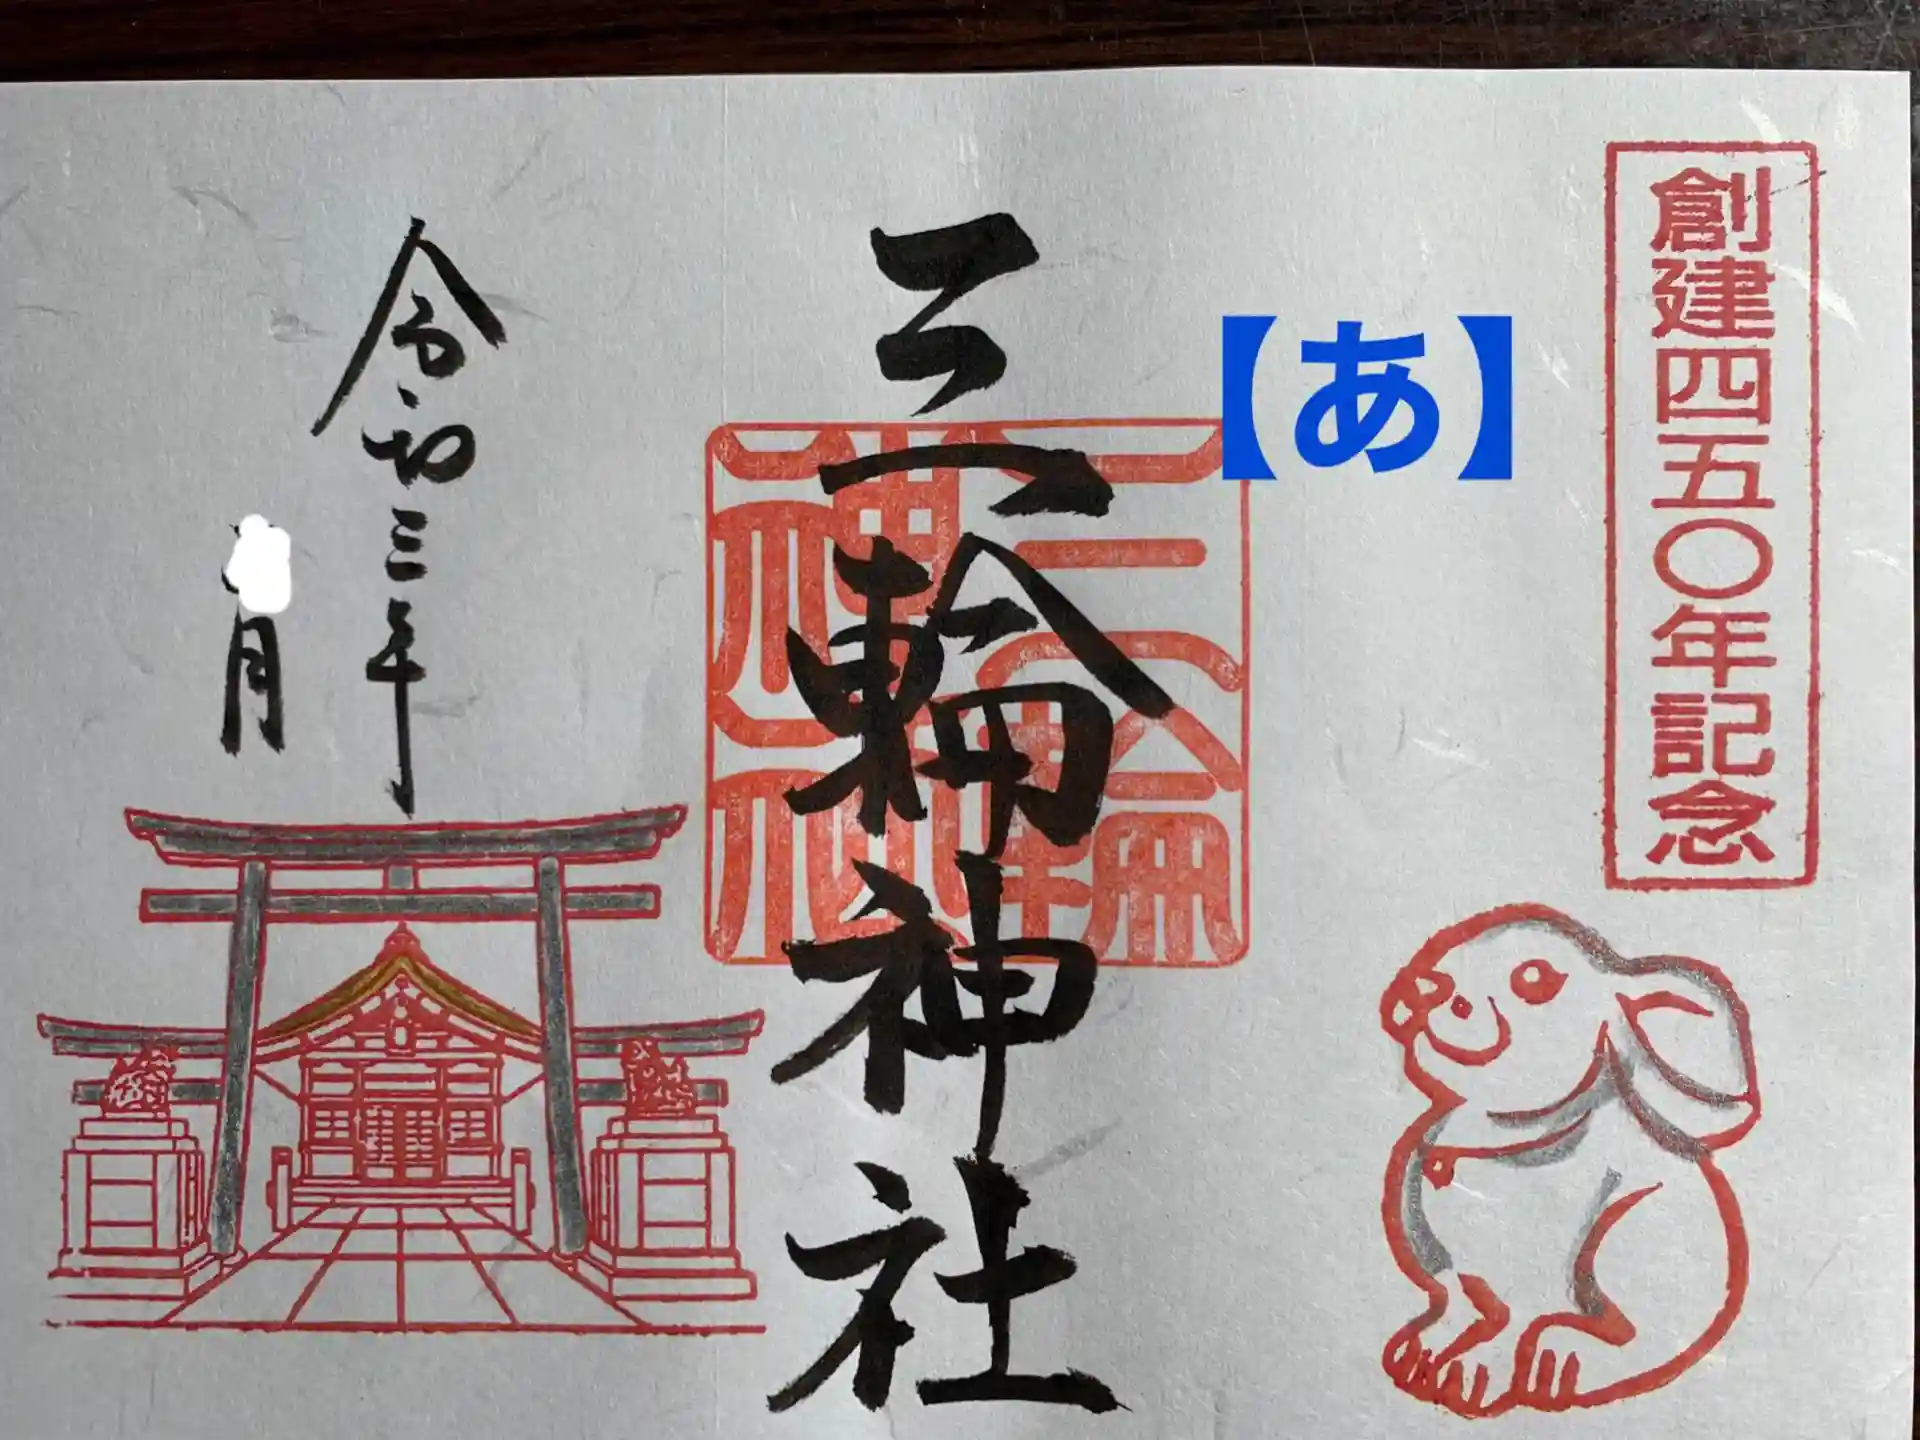 創建四五〇年記念
【あ】
三輪神社
三輪
神社
令和三年
月